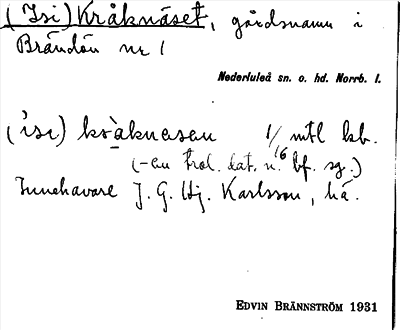 (Isi) Kråknäset, gårdsnamn i
Brändön nr 1
Nederluleå sn. o. hd. Norrb. l.
(ìsi) kràknesen 1/ mtl kb.
(-en trol. dat. n. bf. sg.) 16
Innehavare J. G. Hj. Karlsson, hä.
EDVIN BRÄNNSTRÖM 1931